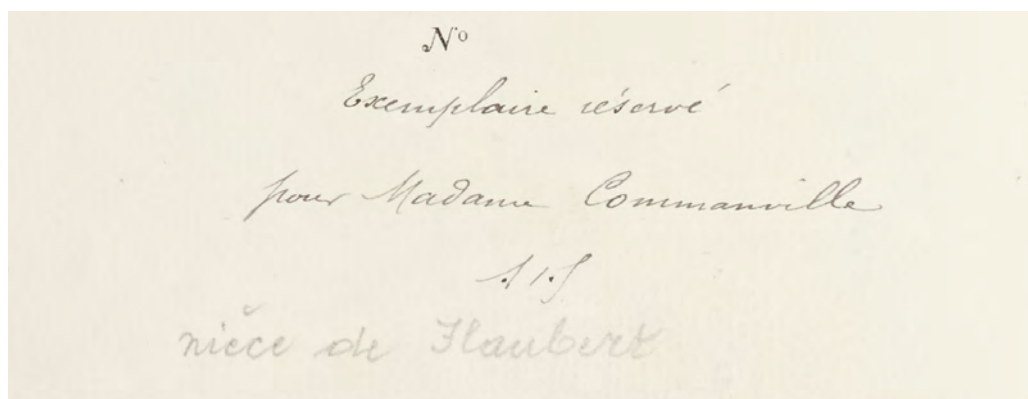 Nº
Exemplaire réservé
pour Madame Commanville
nièce de Flaubert